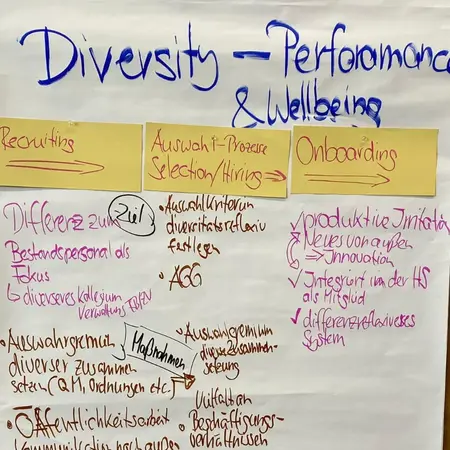 Diversity – Perforamance
& Wellbeing
Recruiting
Differenz zum
Ziel
Bestandspersonal als
Fokus
diverseres Kollegium
Verwaltung
• Auswahlgremium
diverser zusammen
setzen (QM, Ordnungen etc.)
Maßnahmen
• Öffentlichkeitsarbeit
Kommunikation nach außen
Auswahl-Prozesse
Selection/Hiring
• Auswahlkriterien
diversitätsreflexiv
festlegen
• AGG
• Auswahlgremium
divers zusammen-
setzung
Vielfalt an
• Beschäftigungs-
verhältnissen
Onboarding
✓ produktive Irritation
Neues von außen
⇒ Innovation
✓ Integriert in der HS
als Mitglied
✓ differenzreflexives
System